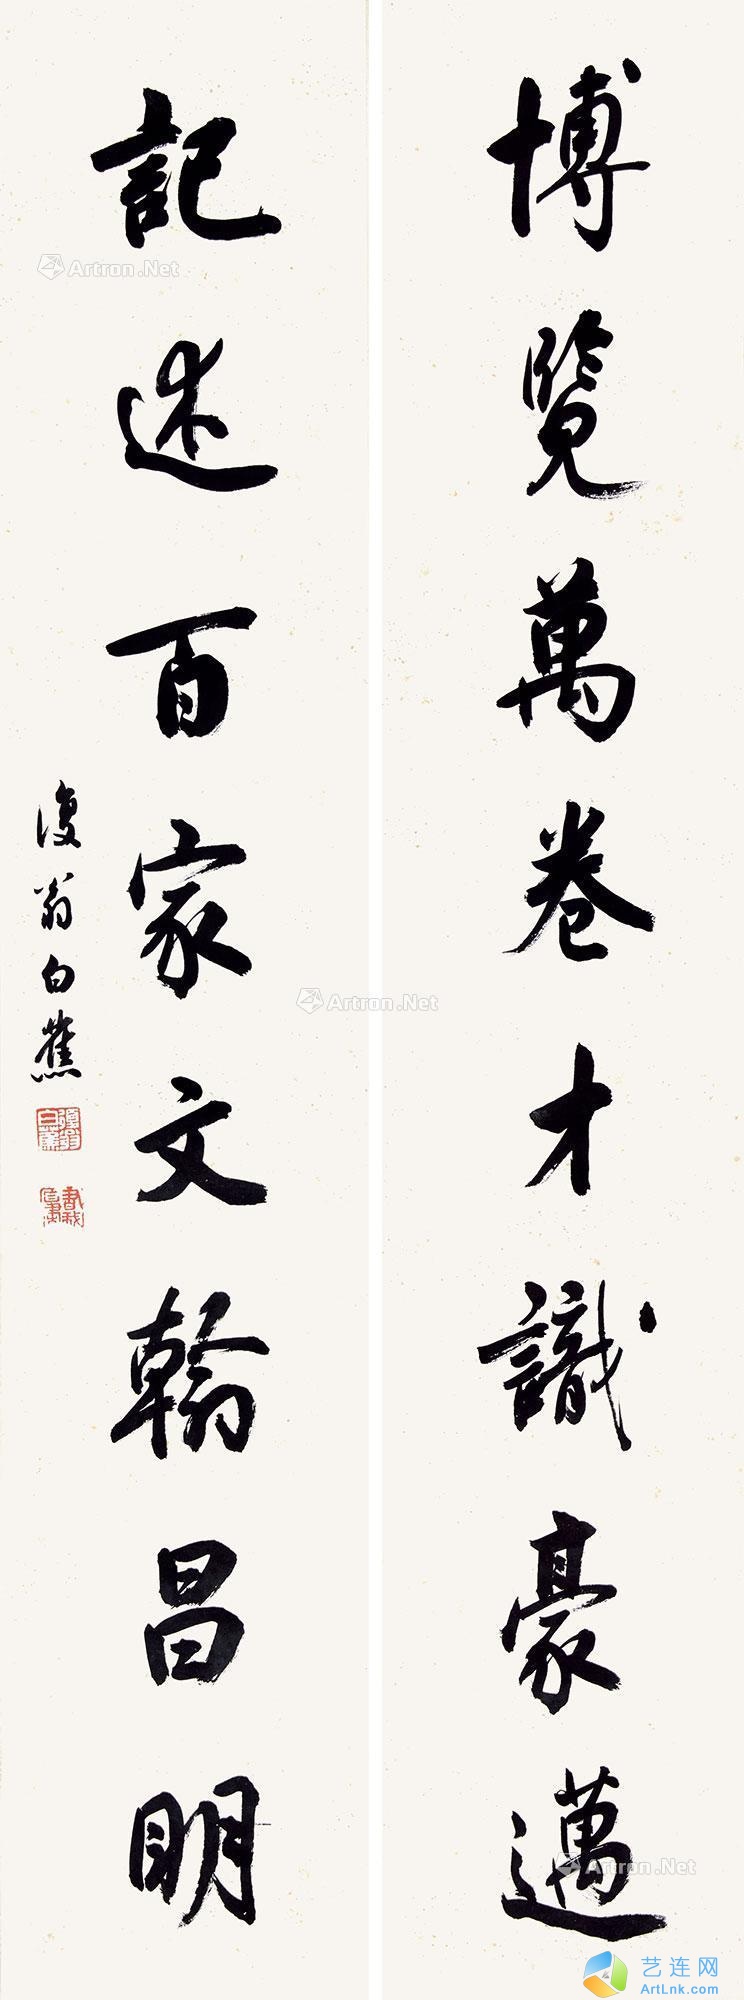 博覽萬卷才識豪邁
記述百家文翰昌明
復翁白蕉
復翁白蕉
Artron.Net
Artron.Net
Artron.Net
艺连网
ArtLnk.com